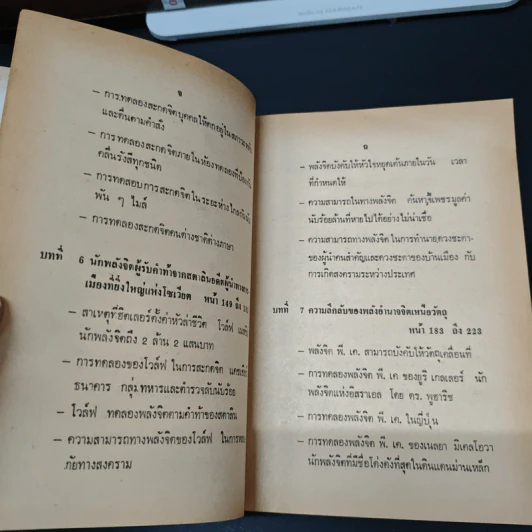 - การทดลองสะกดจิตบุคคลให้ตกอยู่ใน
และตื่นตามคำสั่ง
- การทดลองสะกดจิตภายในห้องทดลอง
คลื่นรังสีทุกชนิด
- การทดสอบการสะกดจิตในระยะห่างไกล
พัน ๆ ไมล์
- การทดลองสะกดจิตคนต่างชาติต่างภาษา
บทที่ 6 นักพลังจิตผู้รับคำท้าจากสตาลินอดีตผู้นำ
เมืองที่ยิ่งใหญ่แห่งโซเวียต หน้า 149 ถึง
- สาเหตุที่ฮิตเลอร์ตั้งค่าหัวล่าชีวิต โวล์ฟ
นักพลังจิตถึง 2 ล้าน 2 แสนบาท
- การทดลองของโวล์ฟ ในการสะกดจิต
ธนาคาร กลุ่มทหารและตำรวจลับนับร้อย
- โวล์ฟ ทดลองพลังจิตตามคำท้าของสตาลิน
- ความสามารถทางพลังจิตของโวล์ฟ ในการ
ภัยทางสงคราม
- พลังจิตบังคับให้หัวใจหยุดเต้นภายในวัน เวลา
ที่กำหนดให้
- ความสามารถในทางพลังจิต ค้นหาเพชรมูลค่า
นับร้อยล้านที่หายไปได้อย่างไม่น่าเชื่อ
- ความสามารถทางพลังจิต ในการทำนายดวงชะตา
ของผู้นำคนสำคัญและดวงชะตาของบ้านเมือง กับ
การเกิดสงครามระหว่างประเทศ
บทที่ 7 ความลึกลับของพลังอำนาจจิตเหนือวัตถุ
หน้า 183 ถึง 223
- พลังจิต พี. เค. สามารถบังคับให้วัตถุเคลื่อนที่
- การทดลองพลังจิต พี. เค ของยูริ เกลเลอร์ นัก
พลังจิตแห่งอิสราเอล โดย ดร. พูฮาริช
- การทดลองพลังจิต พี. เค. ในญี่ปุ่น
- การทดลองพลังจิต พี. เค. ของเนลยา มิเคลโอวา
นักพลังจิตที่มีชื่อโด่งดังที่สุดในดินแดนม่านเหล็ก